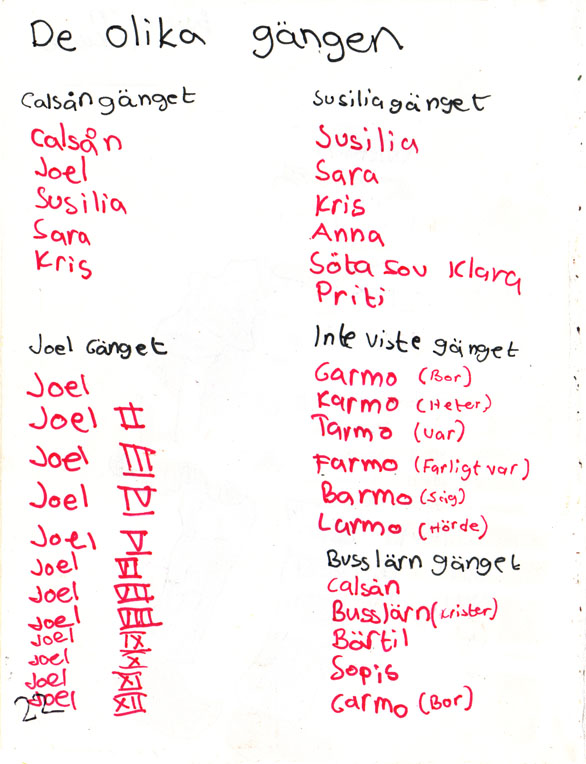 De olika gängen
Calsångänget
Calsån
Joel
Susilia
Sara
Kris
Susiliagänget
Susilia
Sara
Kris
Anna
Söta sov Klara
Priti
Joel Gänget
Joel
Joel II
Joel III
Joel IV
Joel V
Joel VI
Joel VII
Joel VIII
Joel IX
Joel X
Joel XI
Joel XII
22
Inte viste gänget
Garmo (Bor)
Karmo (Heter)
Tarmo (var)
Farmo (Farligt var)
Barmo (Steg)
Larmo (Hörde)
Busslärn gänget
Calsån
Busslärn (Krister)
Bärtil
Sopis
Garmo (Bor)